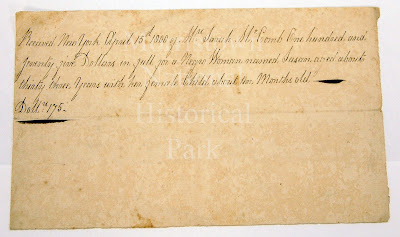 Received New York April 15th 1808 of Mrs Sarah Mc Comb One hundred and
seventy five Dollars in full for a Negro Woman named Susan aged about
thirty three Years with her female Child about ten Months old
Dolls 175-
Historical
Park